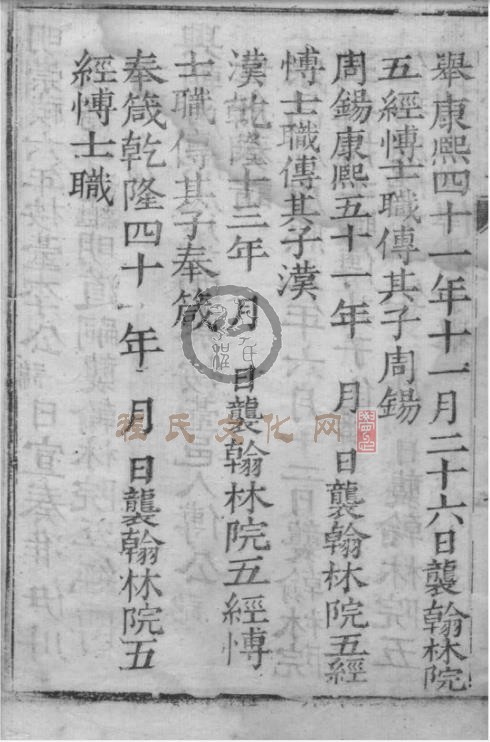 舉康熙四十一年十一月二十六日襲翰林院
五經愽士職傳其子周錫
周錫康熙五十一年 月 日襲翰林院五經
愽士職傳其子漢
漢乾隆十三年 月 日襲翰林院五經愽
士職傳其子奉箴
奉箴乾隆四十一年 月 日襲翰林院五
經愽士職
程氏文化网